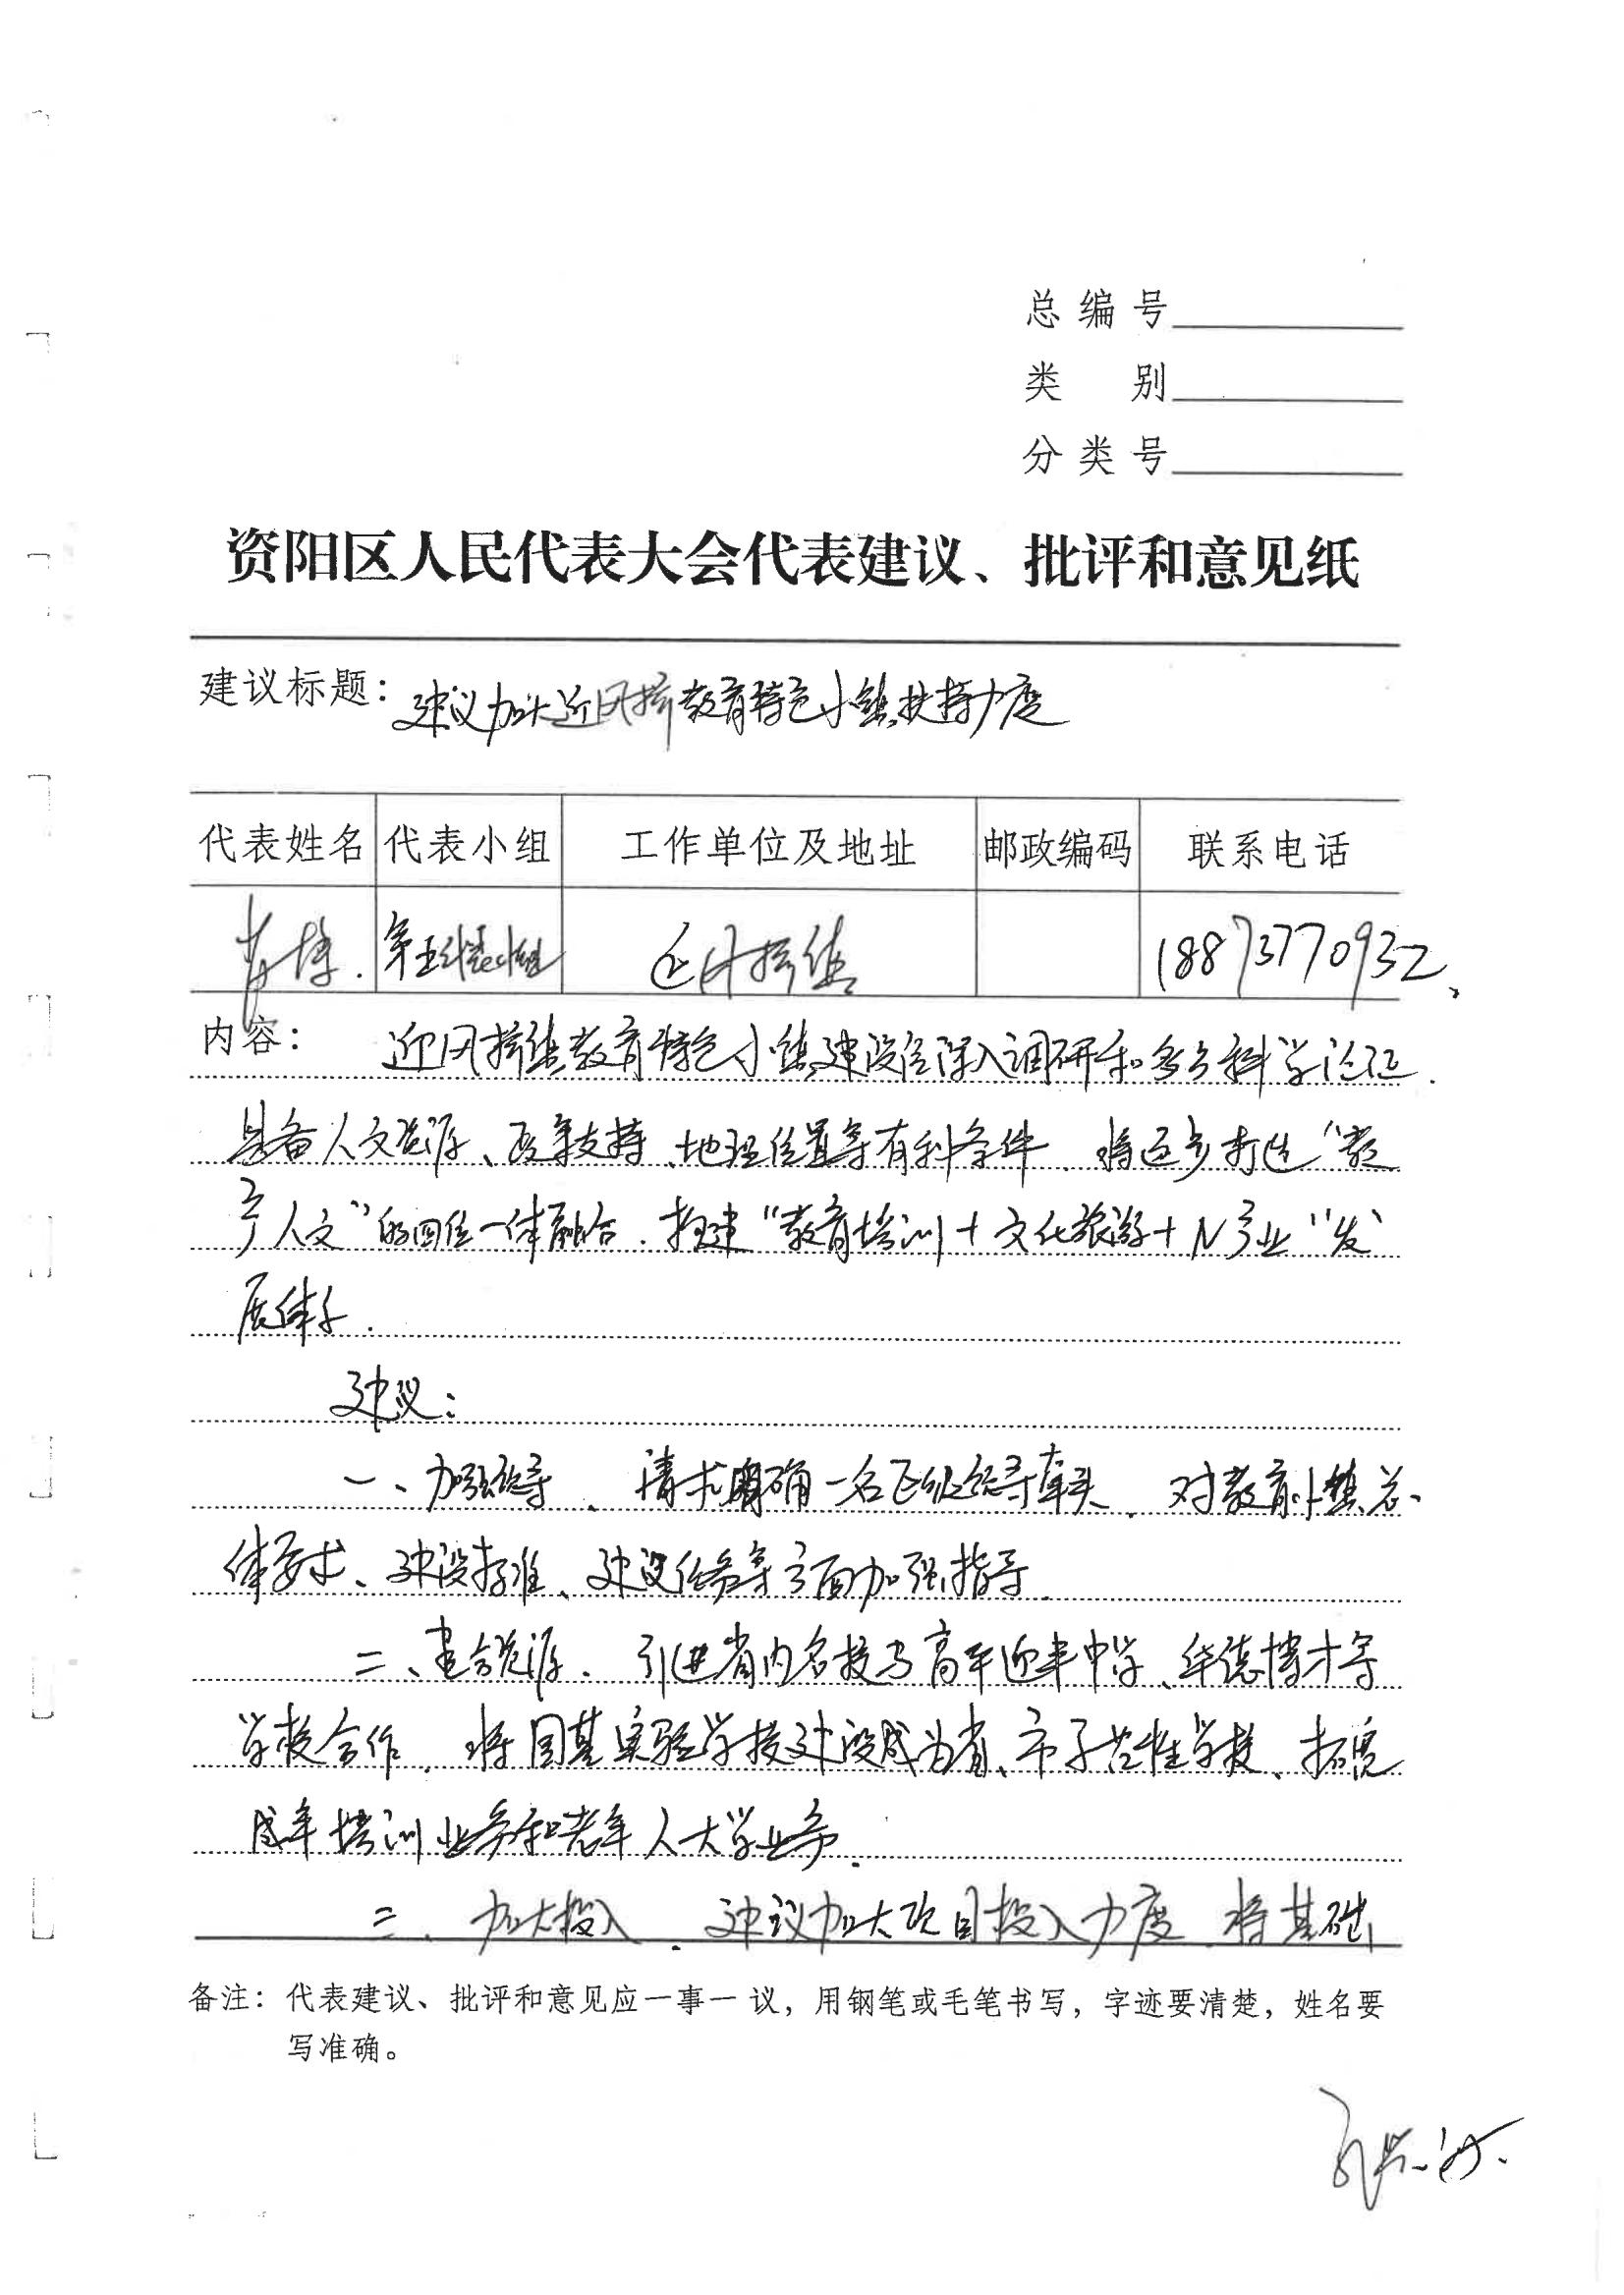 总编号
类 别
分类号
资阳区人民代表大会代表建议、批评和意见纸
建议标题：建议加大迎风桥教育特色小镇扶持力度
代表姓名 代表小组 工作单位及地址 邮政编码 联系电话
肖博 第五代表小组 迎风桥镇 18873770932
内容： 迎风桥镇教育特色小镇建设经深入调研和多方科学论证.
具备人文资源、政策支持、地理位置等有利条件.将逐步打造“教
产人文”的四位一体融合.构建“教育培训+文化旅游+N产业”发
展体系.
建议：
一、加强领导.请求明确一名区级领导牵头.对教育小镇总
体要求、建设标准、建设任务等方面加强指导.
二、整合资源.引进省内名校与高平迎丰中学、华德博才等
学校合作.将国基实验学校建设成为省、市示范性学校、拓宽
成年培训业务和老年人大学业务.
三.加大投入.建议加大项目投入力度.将基础
备注：代表建议、批评和意见应一事一议，用钢笔或毛笔书写，字迹要清楚，姓名要
写准确。